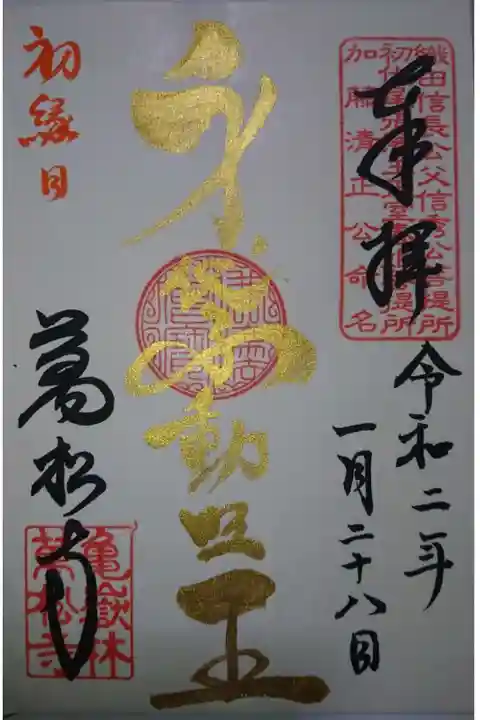 織田信長公父信秀公菩提所
初代尾張藩主正室春姫菩提所
加藤清正公命名
奉拝
令和二年
一月二十八日
動明王
初縁日
萬松寺
亀嶽林
萬松寺